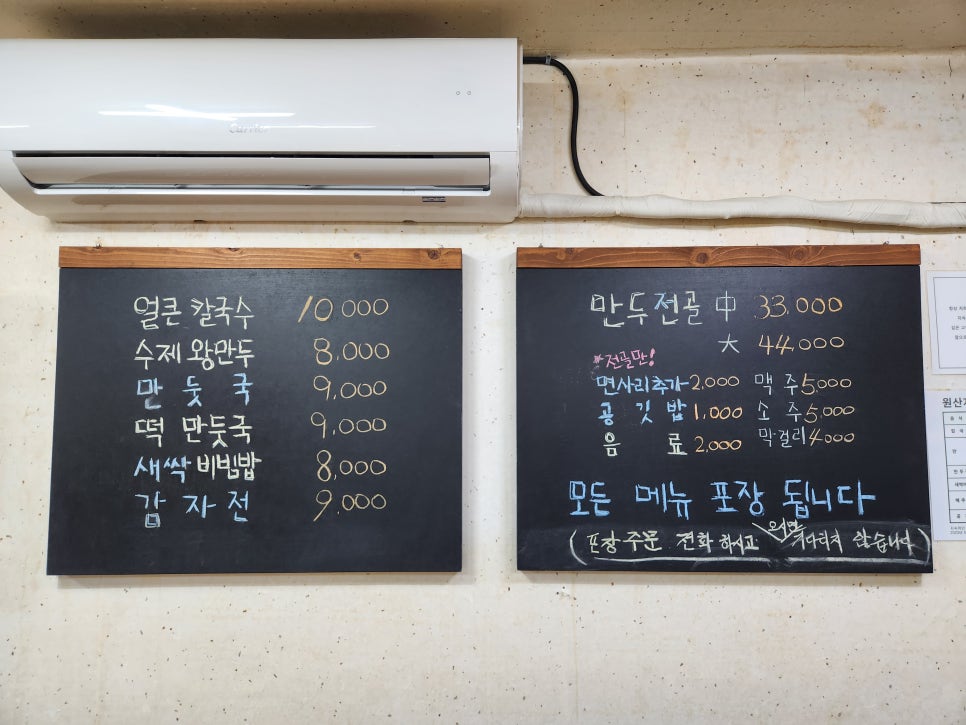 Carrier
얼큰 칼국수 10,000
수제 왕만두 8,000
만 둣 국 9,000
떡 만둣국 9,000
새싹 비빔밥 8,000
감 자 전 9,000
만두전골 中 33,000
大 44,000
*전골만!
면사리추가 2,000 맥 주 5,000
공 깃 밥 1,000 소 주 5,000
음 료 2,000 막걸리 4,000
모든 메뉴 포장 됩니다
(포장주문 전화 하시고 오시면 기다리지 않습니다)
원산지